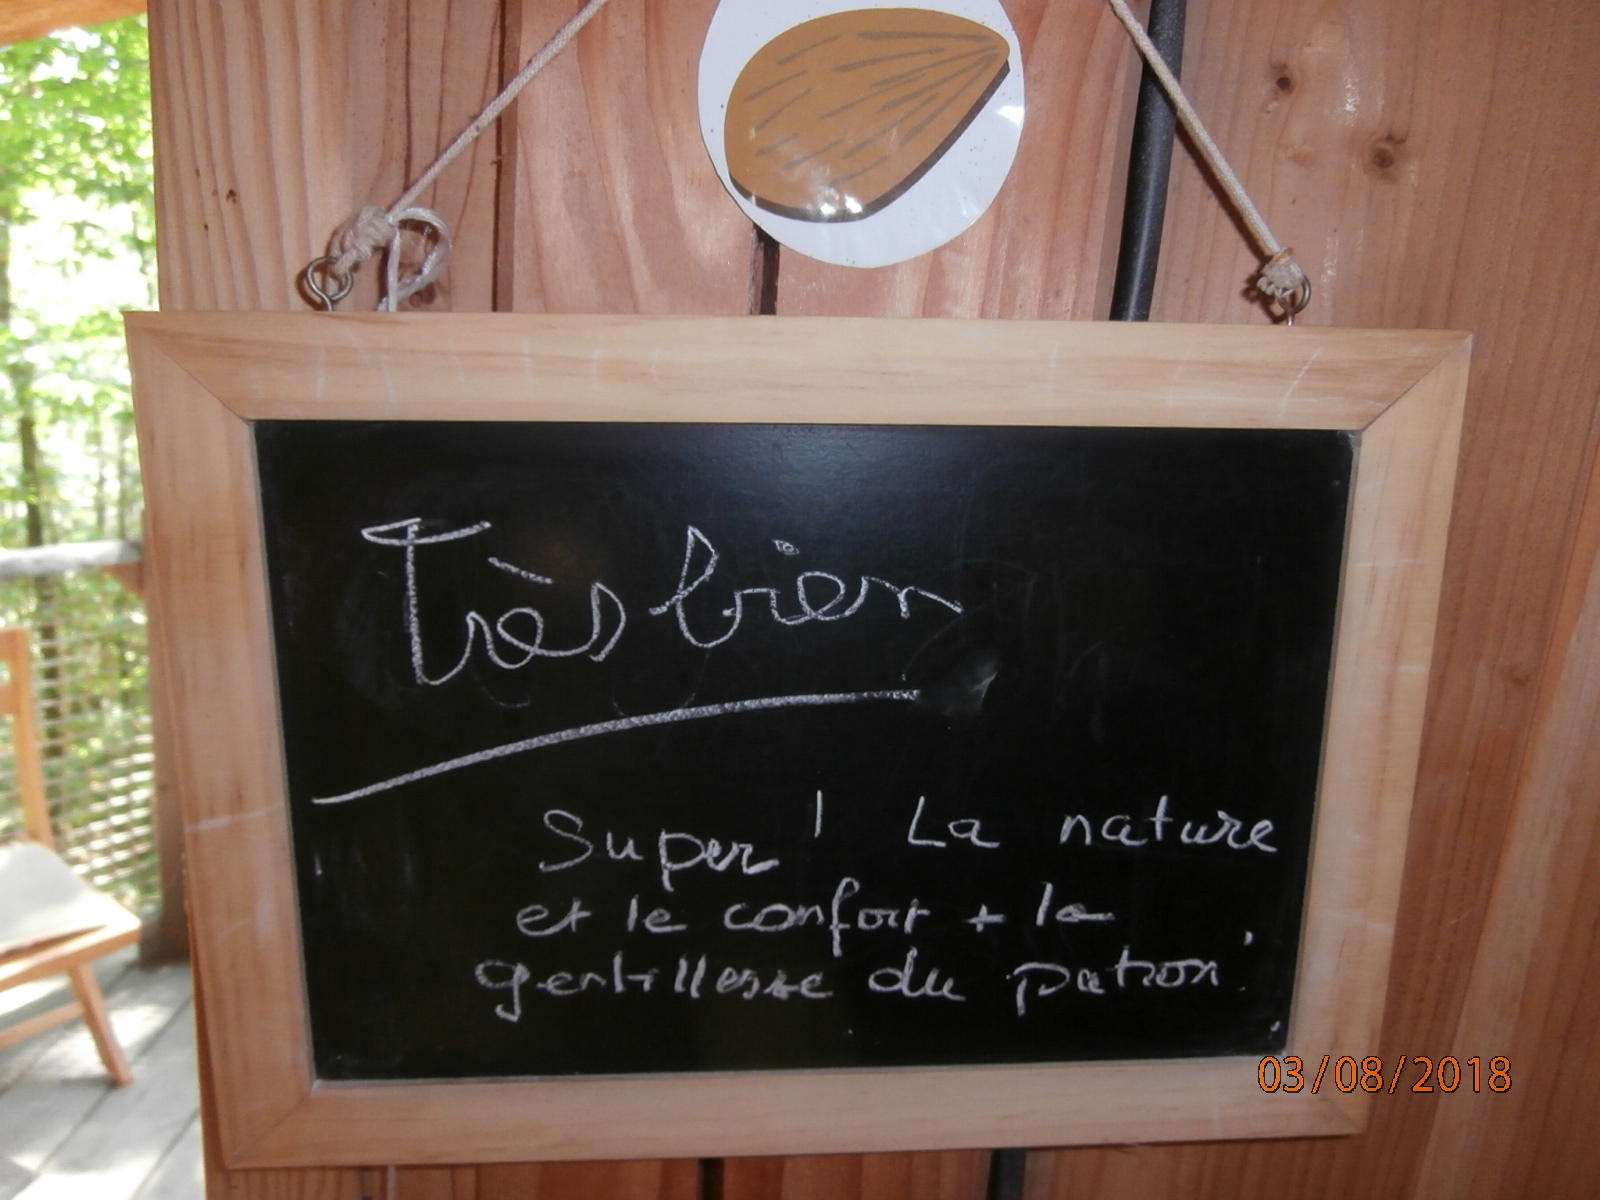 Très bien
Super ! La nature
et le confort + la
gentillesse du patron !
03/08/2018